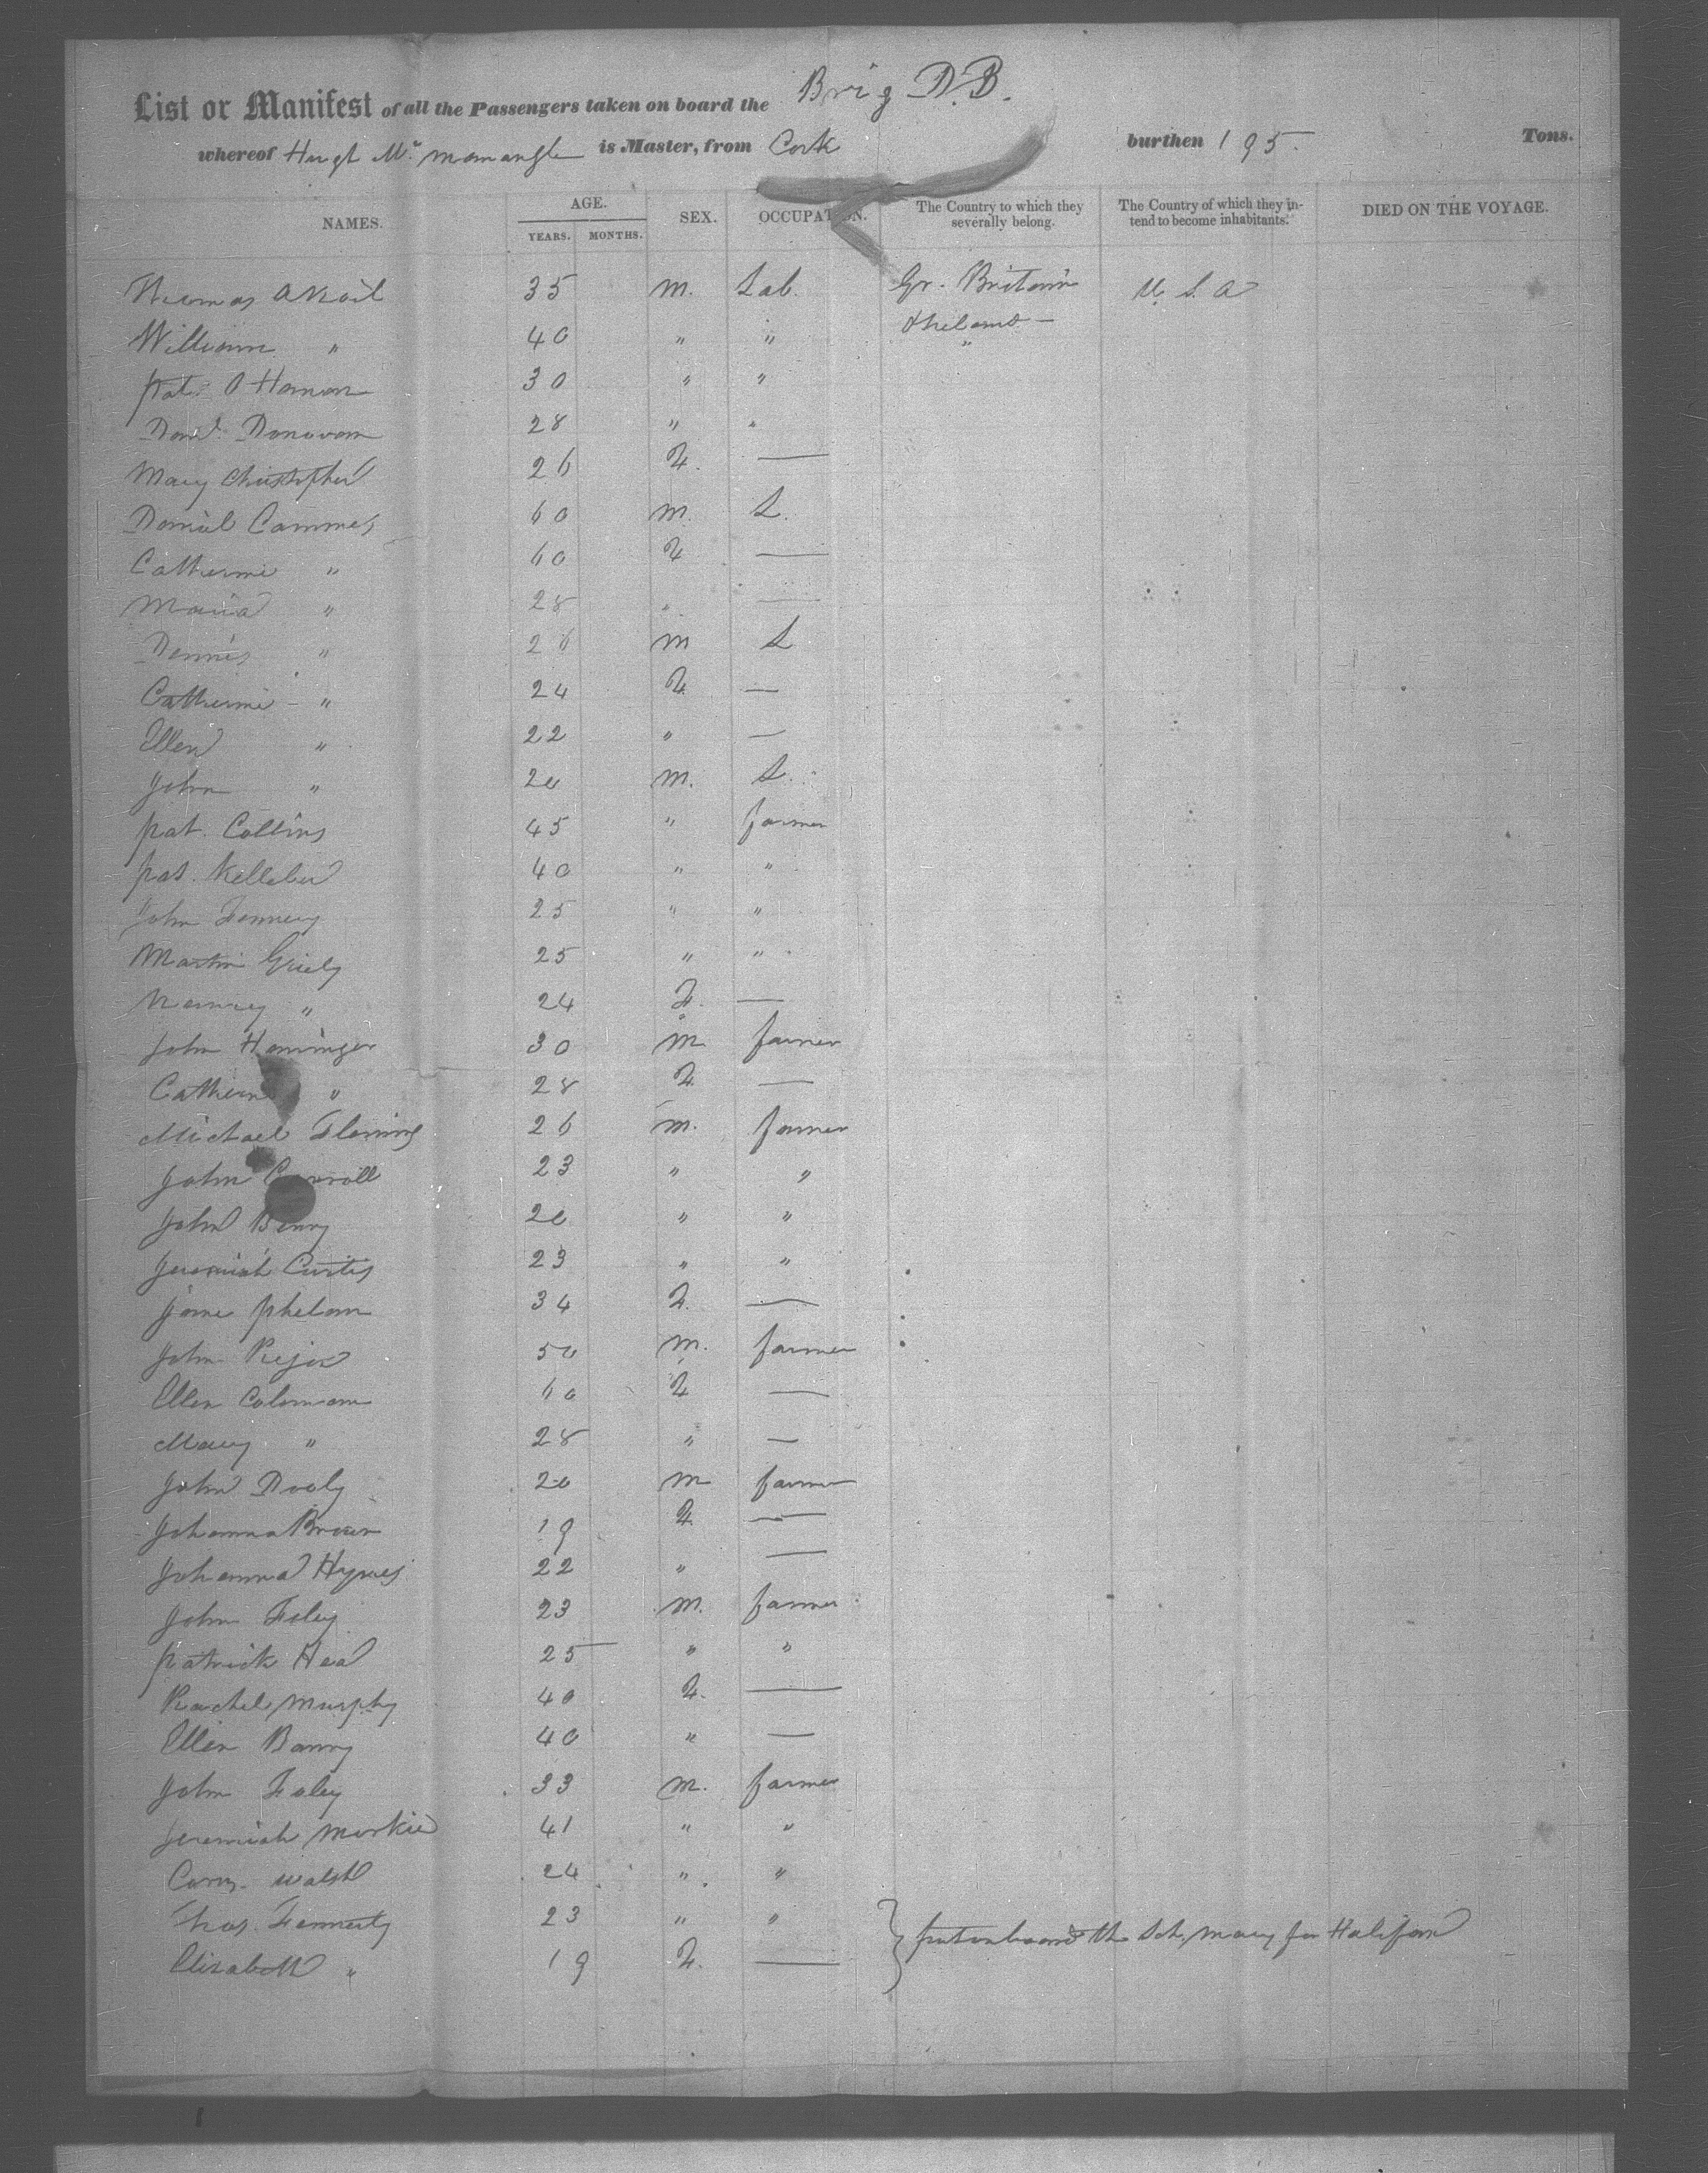 Brig D.B.
List or Manifest of all the Passengers taken on board the
whereof Hugh is Master, from Cork burthen 195 Tons.
NAMES. AGE. YEARS. MONTHS. SEX. OCCUPATION. The Country to which they severally belong. The Country of which they intend to become inhabitants. DIED ON THE VOYAGE.
Thomas 35 m. Lab. Gr. Britain U. S. A
& Ireland —
William " 40 " " "
Pat. O 30 " "
Donovan 28 " "
Mary Christopher 26 F. —
Daniel 60 m. L.
Catherine " 60 F —
Maria " 28 " —
Dennis " 26 m L
Catherine - " 24 F —
Ellen " 22 " —
John " 20 m. L.
Pat. Collins 45 " farmer
Pat. Kelleher 40 " "
John 25 " "
Martin Griely 25 " "
Nancy " 24 F. —
John 30 m farmer
Catherine " 28 F —
Michael Fleming 26 m. farmer
John Carroll 23 " "
John 20 " "
Jeremiah Curtis 23 " "
Jane Phelan 34 F. —
John 50 m. farmer
Ellen Coleman 60 F —
Mary " 28 " —
John Dooly 20 m farmer
Johanna Brown 19 F. —
Johanna Hynes 22 " —
John Foley 23 m. farmer
Patrick Hea 25 " "
Rachel Murphy 40 F. —
Ellen 40 " —
John Foley 33 m. farmer
Jeremiah 41 " "
Walsh 24 " "
Thos. 23 " "
Elisabeth " 19 F. —
put on board the Sch. Mary for Halifax